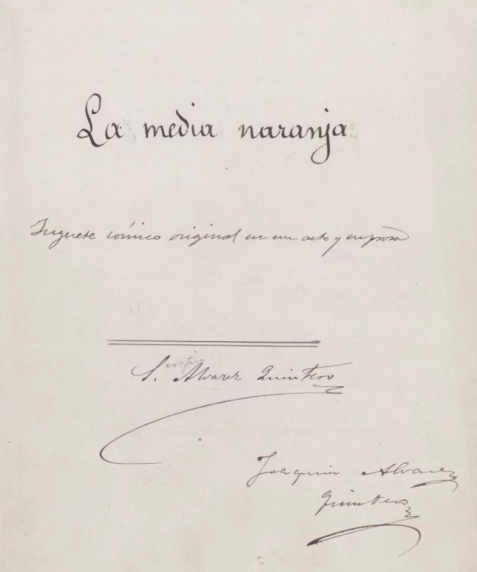 La media naranja
Juguete cómico original en un acto y en prosa
S. Alvarez Quintero
Joaquin Alvarez
Quintero